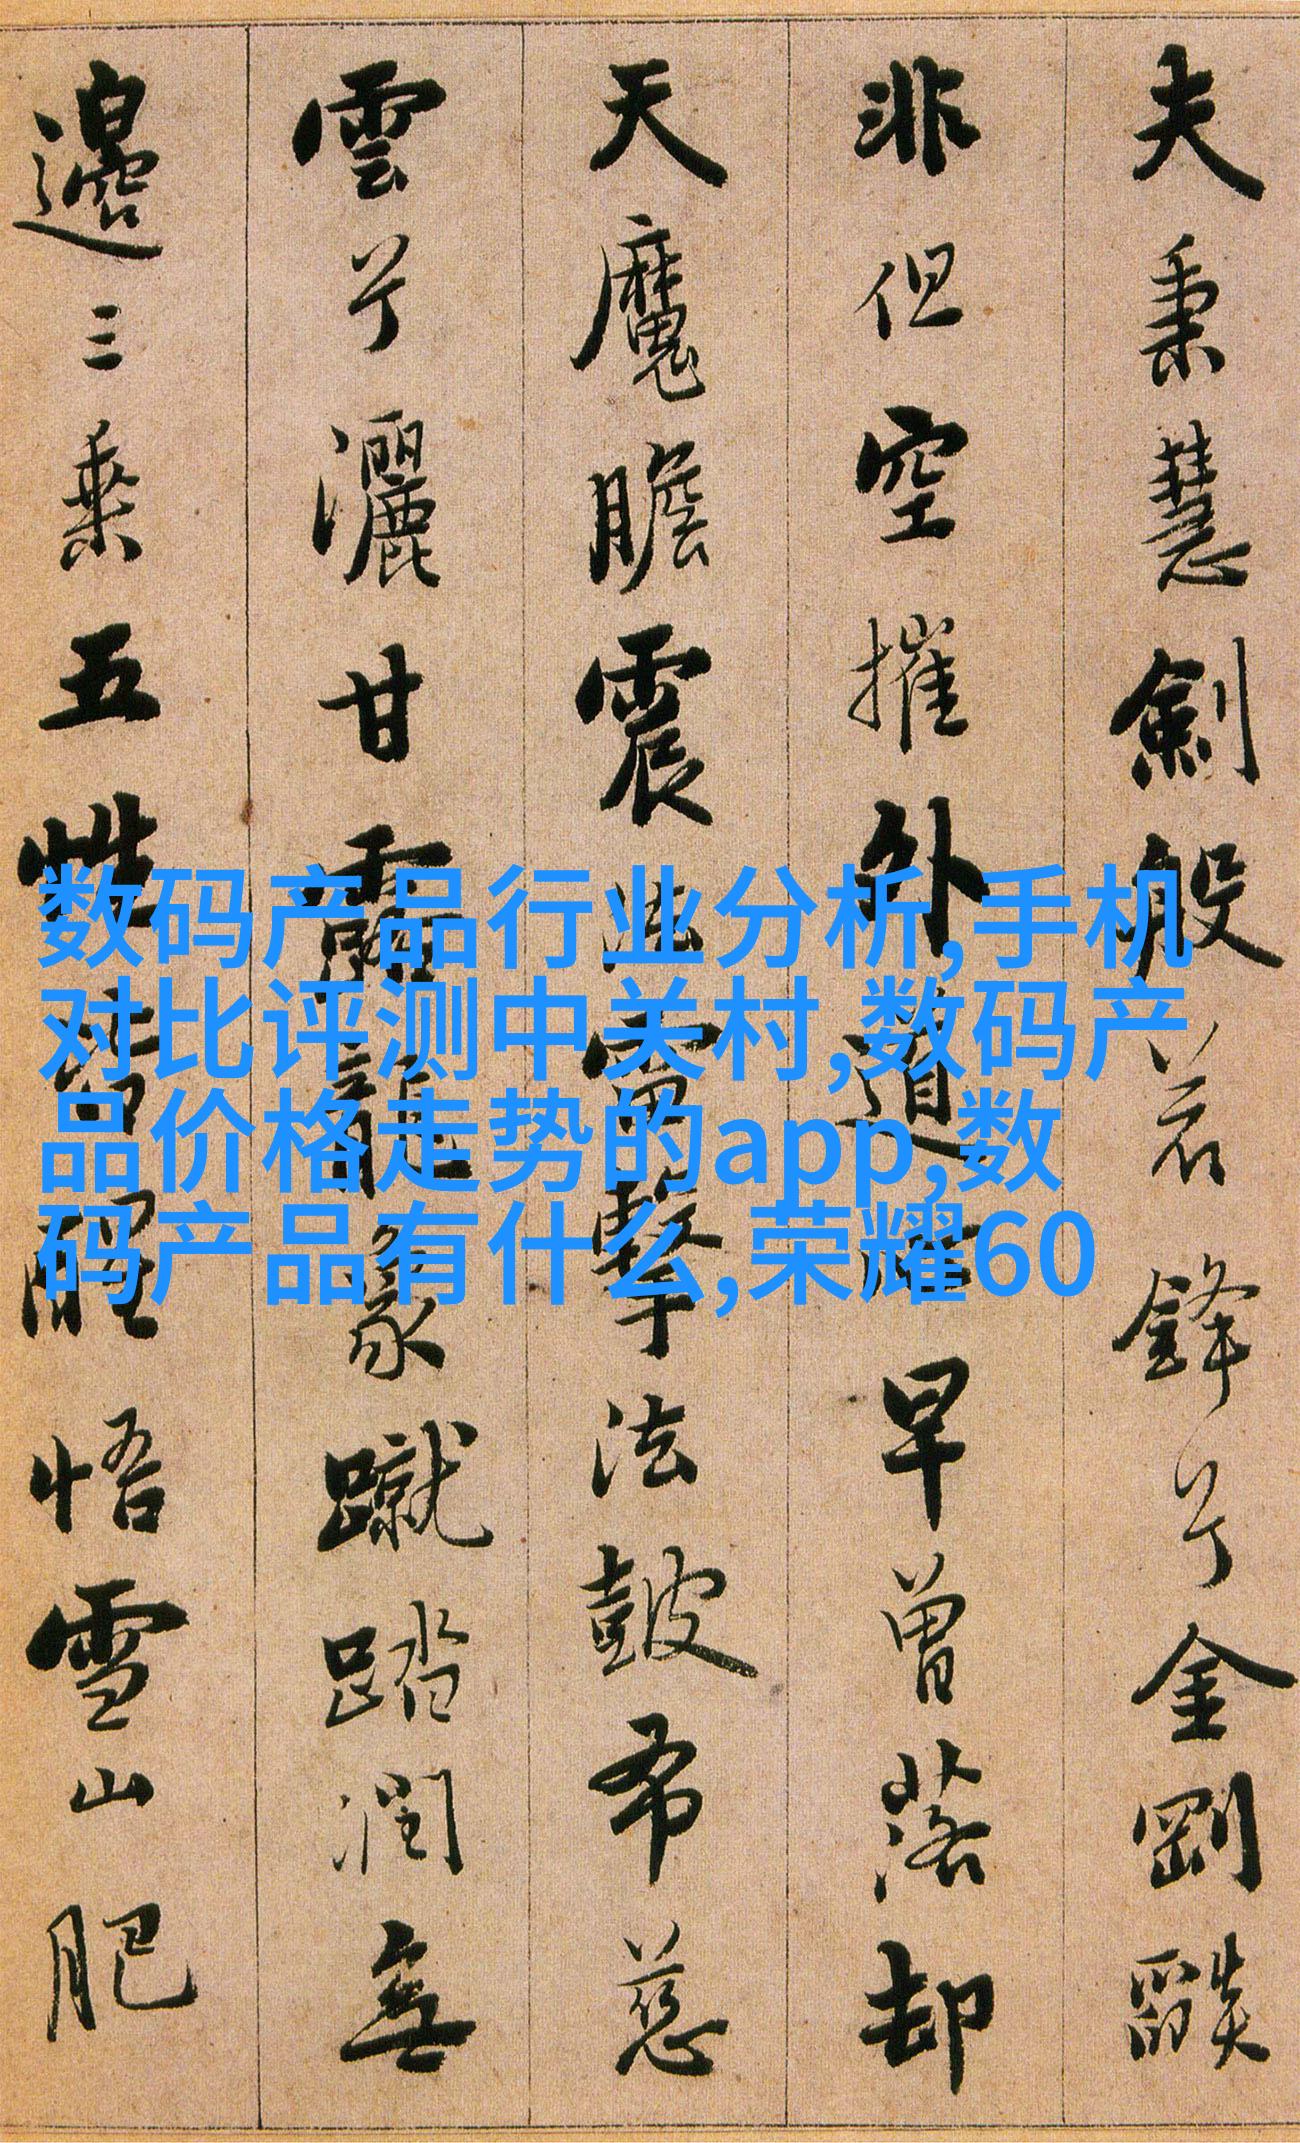 夫秉慧劍般若鋒兮金剛燄
非但空摧外道心早曾落却
天魔膽震法雷擊法皷布慈
雲兮灑甘露龍象蹴踏潤無
邊三乘五性皆醒悟雪山肥
数码产品行业分析,手机
对比评测中关村,数码产
品价格走势的app,数
码产品有什么,荣耀60